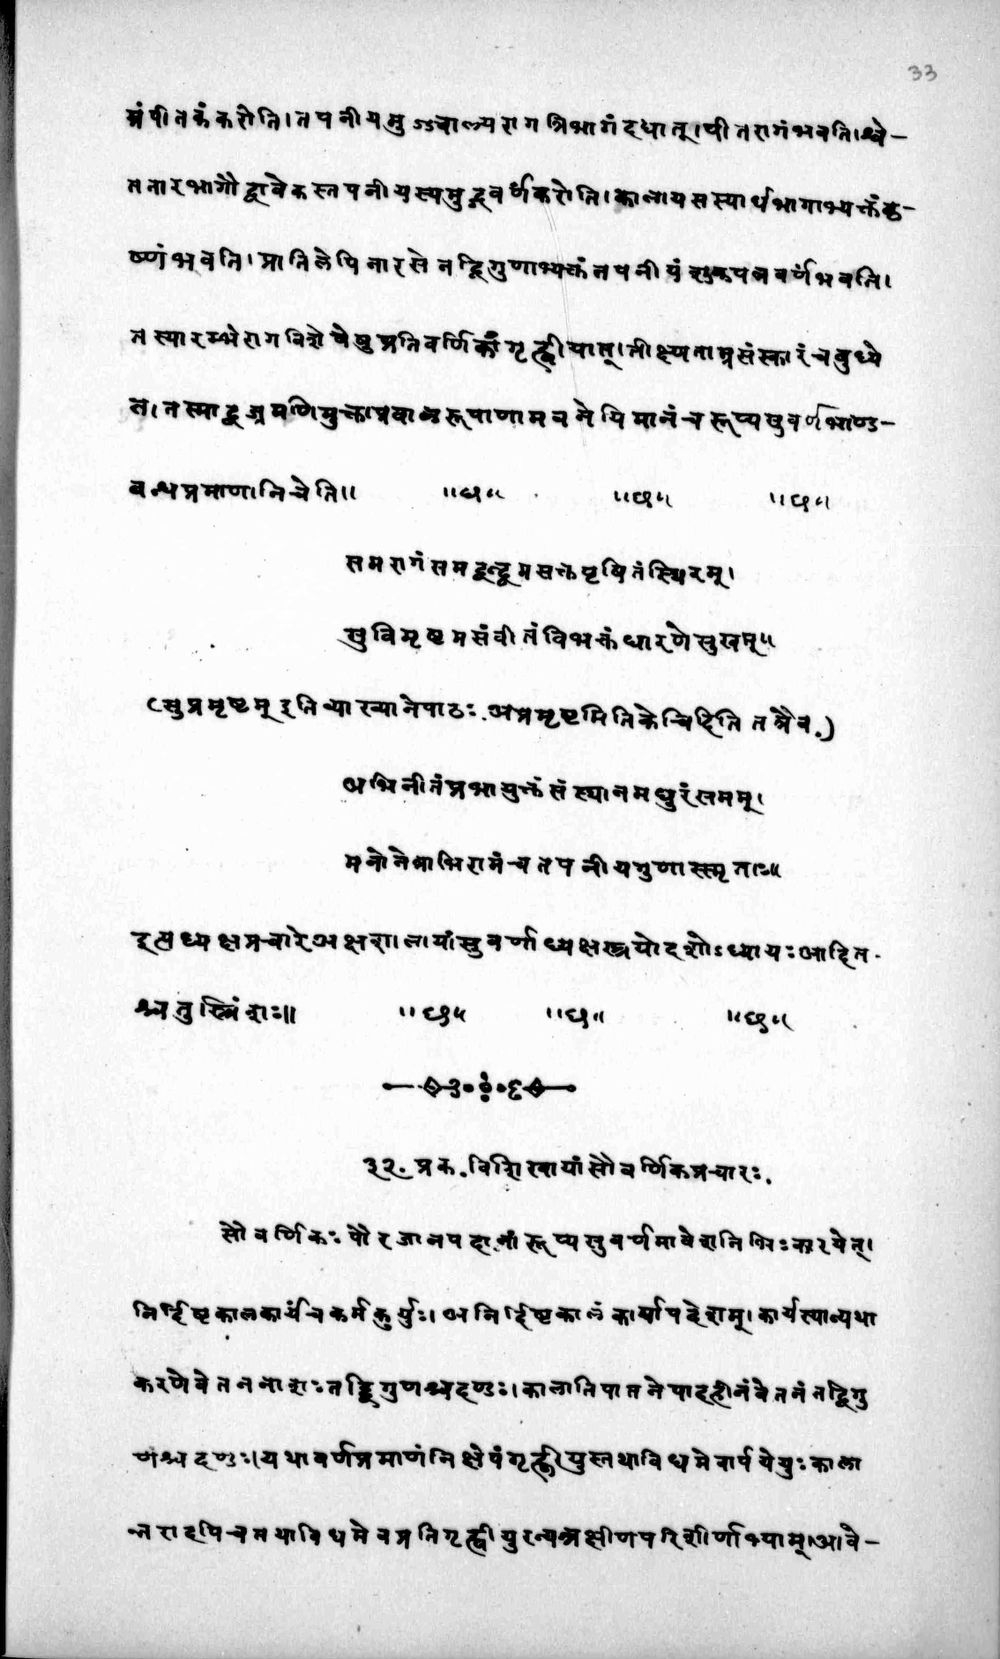 33
म्रंपीतकं करोति। तपनीयमुज्ज्वाल्य रागत्रिभागं दद्यात्। पीतरागंभवति। श्वे-
ततारभागौद्वावेकस्तपनीयस्यमुद्गवर्णंकरोति। कालायसस्यार्धभागाभ्यक्तंकृ-
ष्णंभवति। प्रातिलेपिनारसेनद्विगुणाभ्यक्तंतपनीयंशुकपत्रवर्णंभवति।
तस्यारम्भेरागविशेषेषुप्रतिवर्णिकांगृह्णीयात्। तीक्ष्णताम्रसंस्कारंचबुध्ये
त। तस्माद्वज्रमणिमुक्ताप्रवालरूपाणामपनेयिमानंचरूप्यसुवर्णभाण्ड-
बन्धप्रमाणानिचेति॥ ॥छ॥ ॥छ॥ ॥छ॥
समरागंसमद्वन्द्वमसक्तपृषितंस्थिरम्।
सुविमृष्टमसंवीतंविभक्तंधारणेसुखम्॥
(सुप्रमृष्टम् इतिव्याख्यानेपाठः. अप्रमृष्टमितिकेचिदिति तत्रैव.)
अभिनीतंप्रभायुक्तंसंस्थानमधुरंसमम्।
मनोनेत्राभिरामंचतपनीयगुणास्स्मृताः॥
इत्यध्यक्षप्रचारेअक्षशालायांसुवर्णाध्यक्षस्त्रयोदशोऽध्यायः आदित-
श्चतुस्त्रिंशः॥ ॥छ॥ ॥छ॥ ॥छ॥
३२. प्रक. विशिखायांसौवर्णिकप्रचारः.
सौवर्णिकः पौरजानपदानांरूप्यसुवर्णमावेशनिभिः कारयेत्।
निर्दिष्टकालकार्यंचकर्मकुर्युः। अनिर्दिष्टकालंकार्यापदेशम्। कार्यस्यान्यथा
करणेवेतननाशः तद्द्विगुणश्चदण्डः। कालातिपातनेपादहीनंवेतनंतद्द्विगु
णश्चदण्डः। यथावर्णप्रमाणंनिक्षेपंगृह्णीयुस्तथाविधमेवार्पयेयुः काला
न्तरादपिचतथाविधमेवप्रतिगृह्णीयुरन्यत्रक्षीणपरिशीर्णाभ्याम्। आवे-